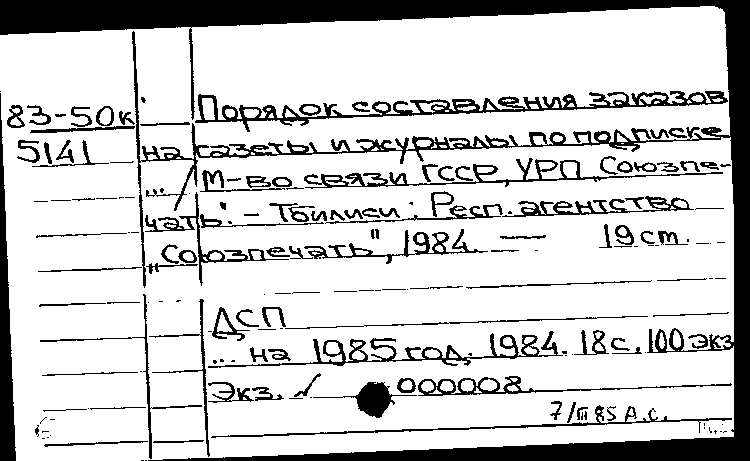 83-50к Порядок составления заказов
5141 на газеты и журналы по подписке
... / М-во связи ГССР, УРП „Союзпе-
чать". - Тбилиси : Респ. агентство
„Союзпечать", 1984. — 19 cm.
ДСП
... на 1985 год. 1984. 18 с. 100 экз
Экз. ✓ 000008.
7/III 85 А.С.